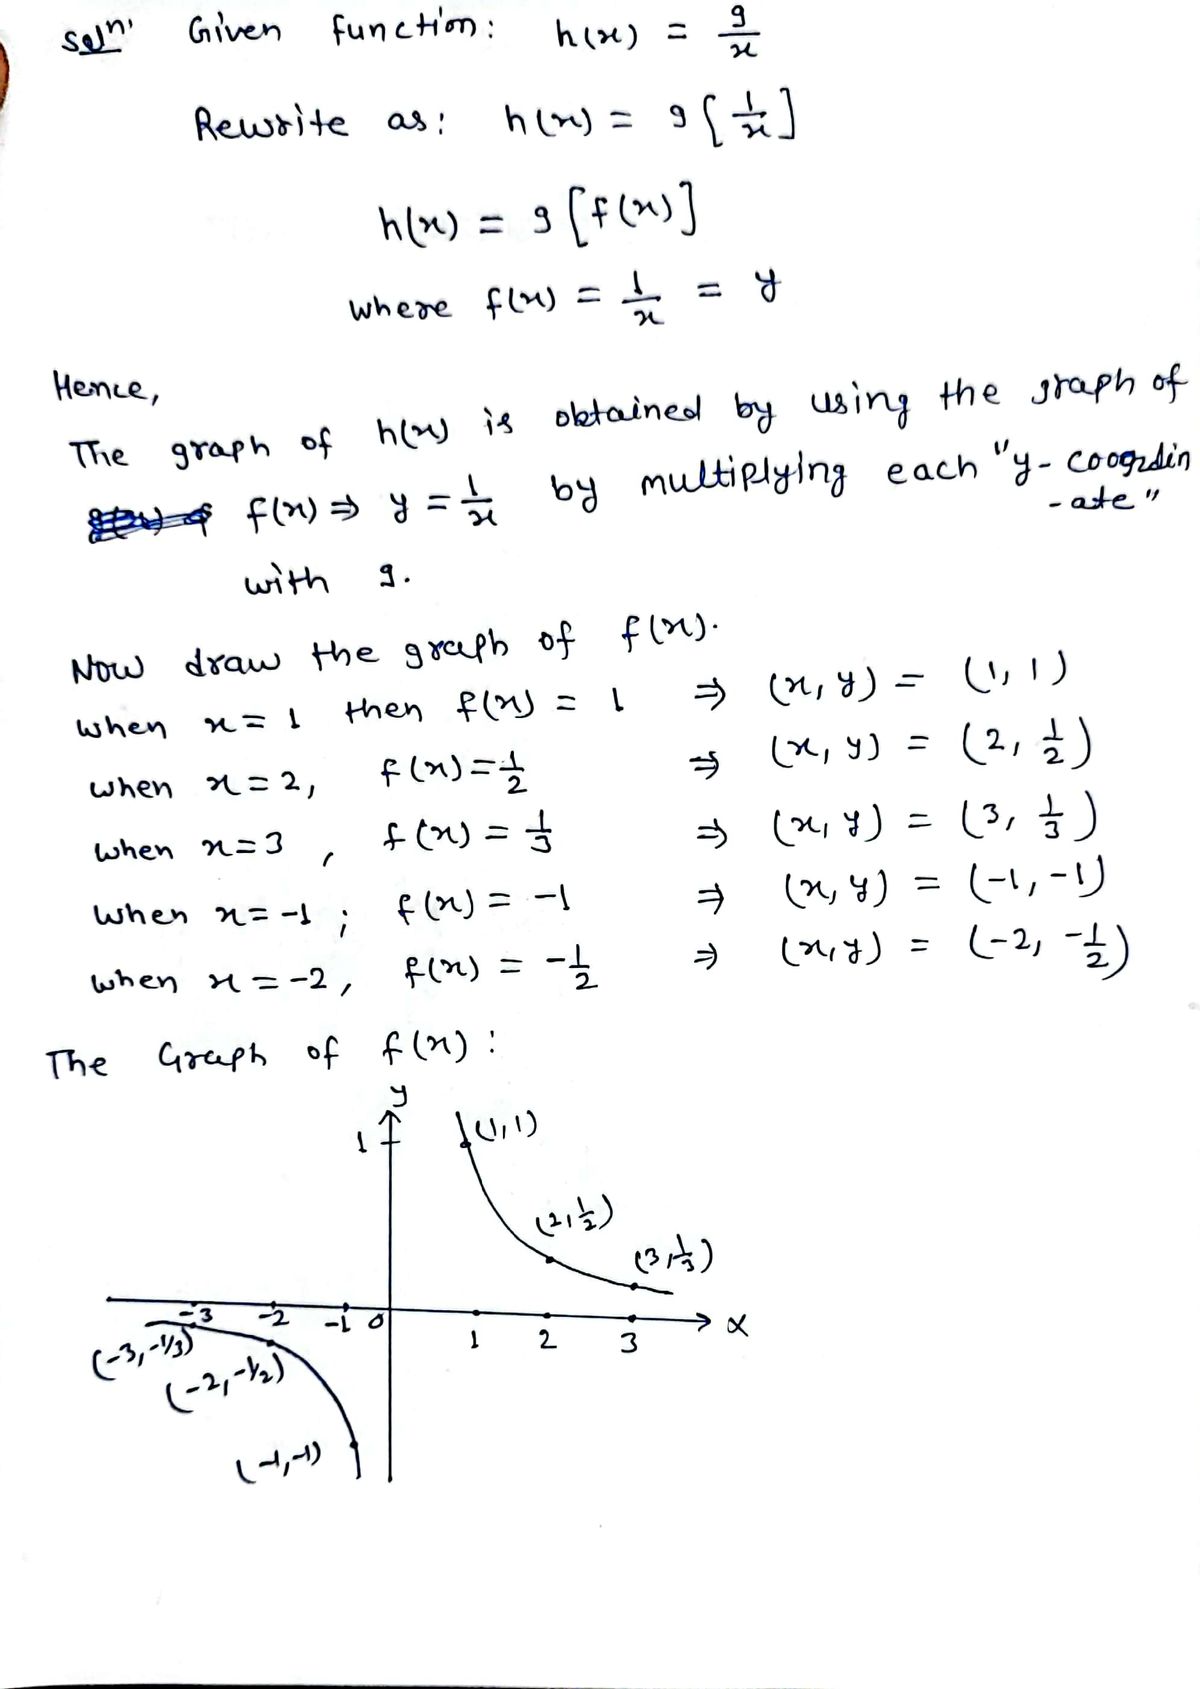 Soln. Given function: h(x) = 9/x
Rewrite as: h(x) = 9[1/x]
h(x) = 9[f(x)]
where f(x) = 1/x = y
Hence,
The graph of h(x) is obtained by using the graph of
f(x) ⇒ y = 1/x by multiplying each "y-coordin
-ate"
with 9.
Now draw the graph of f(x).
when x = 1 then f(x) = 1 ⇒ (x, y) = (1, 1)
when x = 2, f(x) = 1/2 ⇒ (x, y) = (2, 1/2)
when x = 3, f(x) = 1/3 ⇒ (x, y) = (3, 1/3)
when x = -1; f(x) = -1 ⇒ (x, y) = (-1, -1)
when x = -2, f(x) = -1/2 ⇒ (x, y) = (-2, -1/2)
The Graph of f(x):
y
1 (1,1)
(2, 1/2)
(3, 1/3)
-3 -2 -1 0 1 2 3 x
(-3, -1/3)
(-2, -1/2)
(-1, -1)